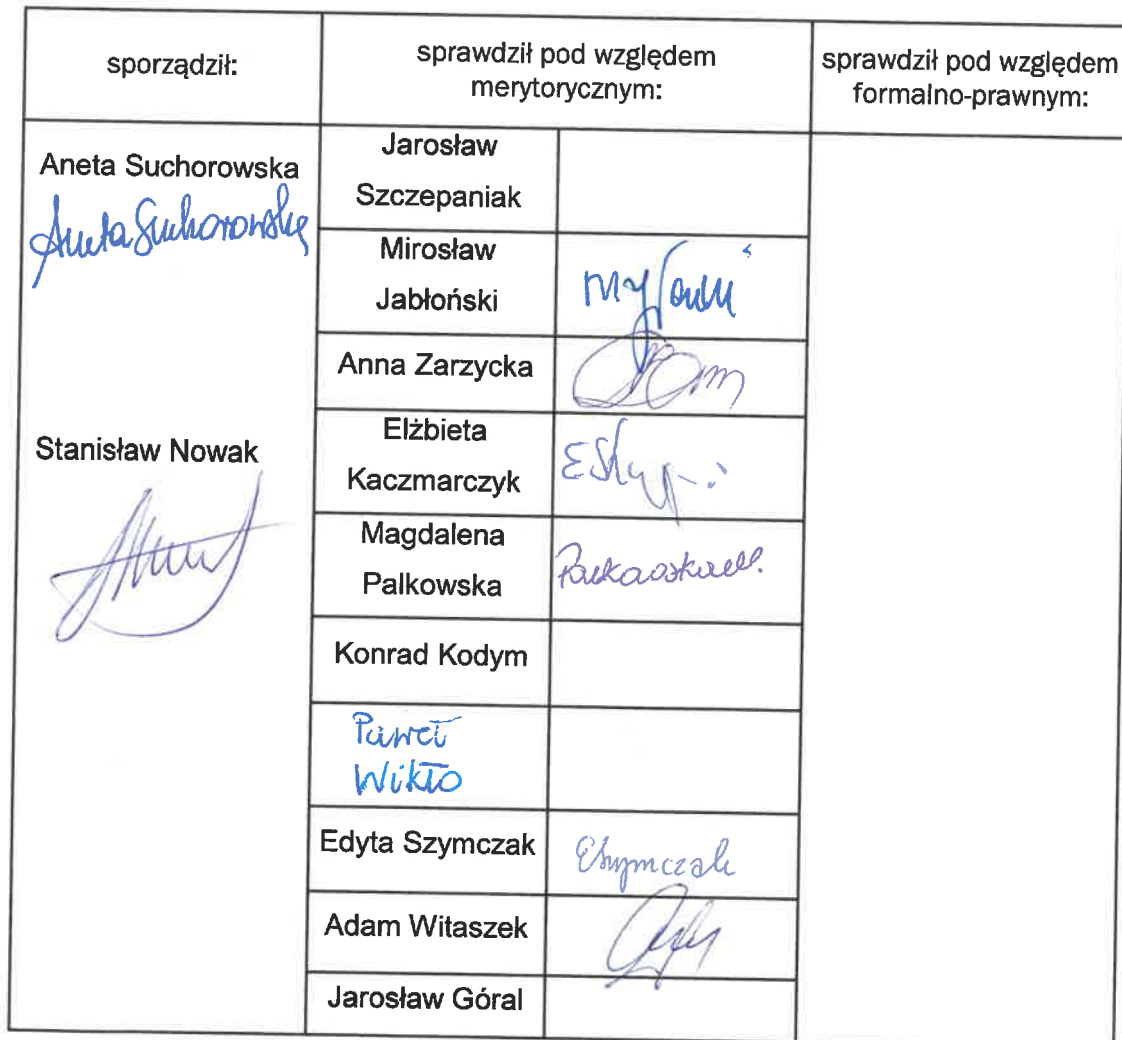 sporządził:
sprawdził pod względem
merytorycznym:
sprawdził pod względem
formalno-prawnym:
Aneta Suchorowska
Aneta Suchorowska
Stanisław Nowak
Jarosław
Szczepaniak
Mirosław
Jabłoński
Anna Zarzycka
Elżbieta
Kaczmarczyk
Magdalena
Palkowska
Palkowska M.
Konrad Kodym
Paweł
Wikło
Edyta Szymczak
ESzymczak
Adam Witaszek
Jarosław Góral